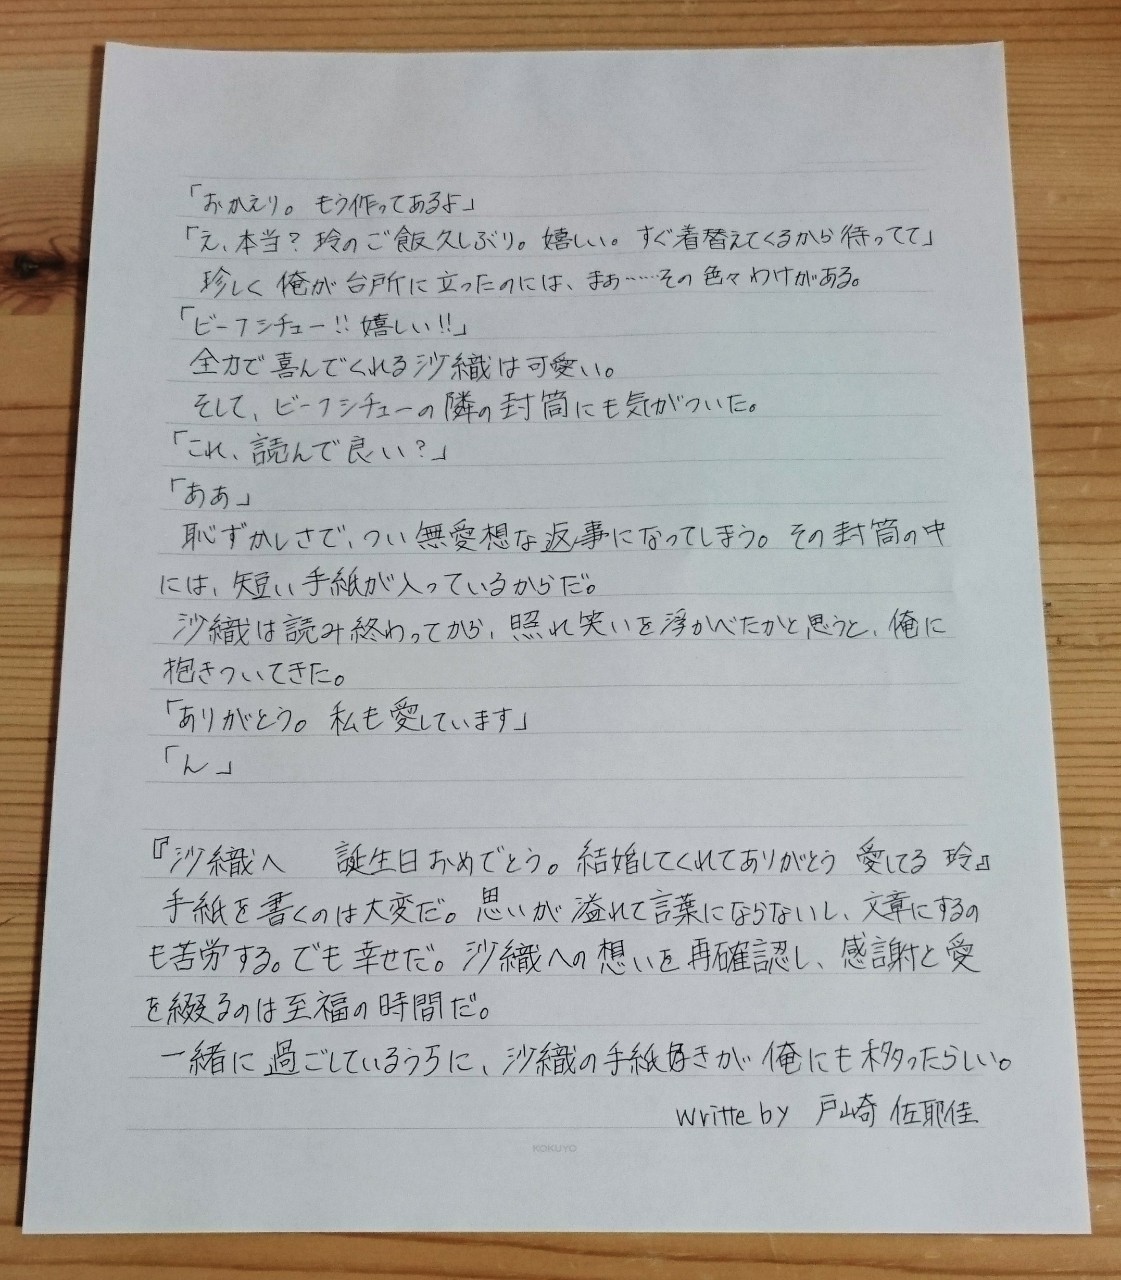 「おかえり。もう作ってあるよ」
「え、本当？玲のご飯久しぶり。嬉しい。すぐ着替えてくるから待ってて」
珍しく俺が台所に立ったのには、まぁ……その色々わけがある。
「ビーフシチュー!!嬉しい!!」
全力で喜んでくれる沙織は可愛い。
そして、ビーフシチューの隣の封筒にも気がついた。
「これ、読んで良い？」
「ああ」
恥ずかしさで、つい無愛想な返事になってしまう。その封筒の中
には、短い手紙が入っているからだ。
沙織は読み終わってから、照れ笑いを浮かべたかと思うと、俺に
抱きついてきた。
「ありがとう。私も愛しています」
「ん」
『沙織へ　誕生日おめでとう。結婚してくれてありがとう 愛してる 玲』
手紙を書くのは大変だ。思いが溢れて言葉にならないし、文章にするの
も苦労する。でも幸せだ。沙織への想いを再確認し、感謝と愛
を綴るのは至福の時間だ。
一緒に過ごしているうちに、沙織の手紙好きが俺にも移ったらしい。
writte by 戸崎佐耶佳
KOKUYO